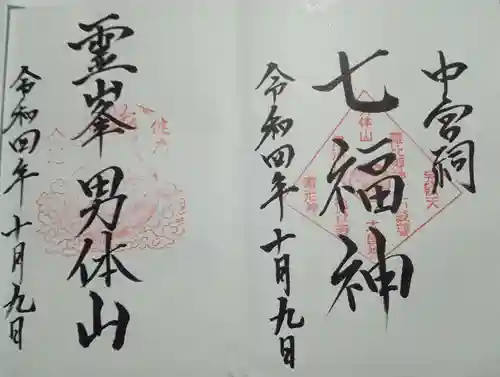 中宮祠
七福神
令和四年十月九日
霊峯男体山
令和四年十月九日